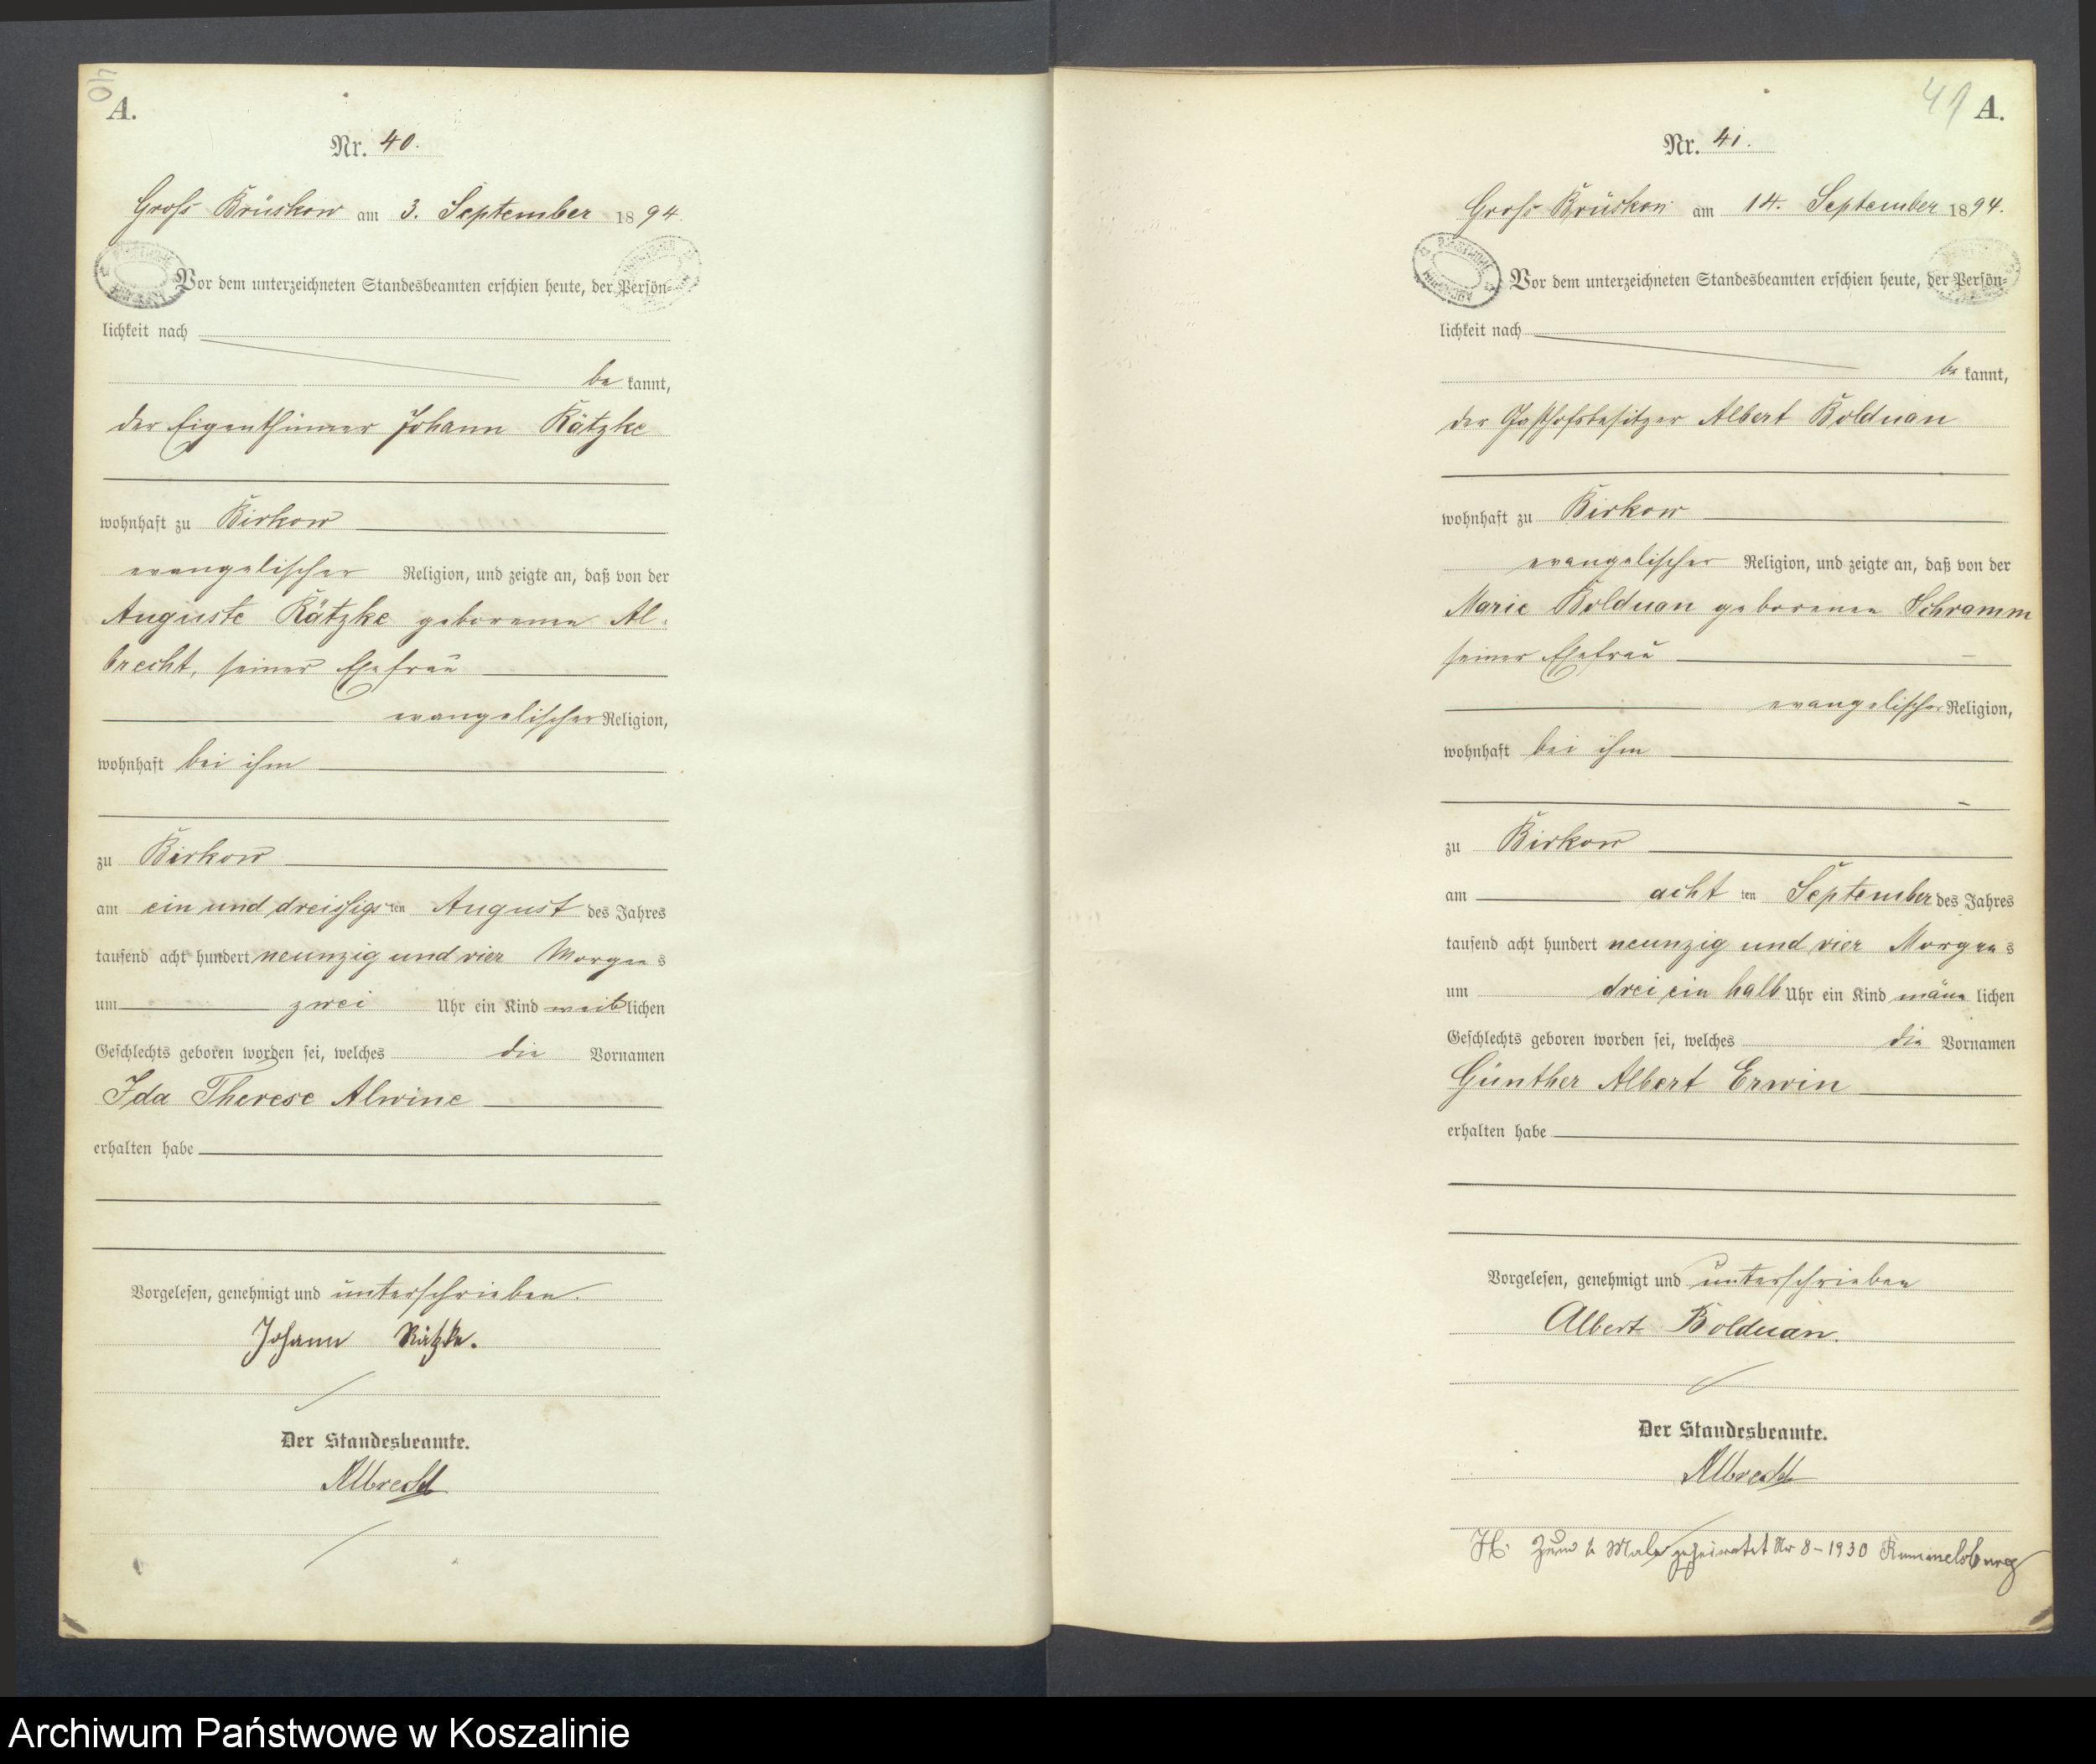 40
A.
Nr. 40.
Groß Brüskow am 3. September 1894
Vor dem unterzeichneten Standesbeamten erschien heute, der Persön-
lichkeit nach
be kannt,
der Eigenthümer Johann Rätzke
wohnhaft zu Birkow
evangelischer Religion, und zeigte an, daß von der
Auguste Rätzke geborenen Al-
brecht, seiner Ehefrau
evangelischer Religion,
wohnhaft bei ihm
zu Birkow
am ein und dreissigsten August des Jahres
tausend acht hundert neunzig und vier Morgens
um zwei Uhr ein Kind weiblichen
Geschlechts geboren worden sei, welches die Vornamen
Ida Therese Alwine
erhalten habe
Vorgelesen, genehmigt und unterschrieben.
Johann Rätzke.
Der Standesbeamte.
Albrecht
41 A.
Nr. 41.
Groß Brüskow am 14. September 1894.
Vor dem unterzeichneten Standesbeamten erschien heute, der Persön-
lichkeit nach
be kannt,
der Gasthofsbesitzer Albert Bolduan
wohnhaft zu Birkow
evangelischer Religion, und zeigte an, daß von der
Marie Bolduan geborenen Schramm
seiner Ehefrau
evangelischer Religion,
wohnhaft bei ihm
zu Birkow
am acht ten September des Jahres
tausend acht hundert neunzig und vier Morgens
um drei ein halb Uhr ein Kind männlichen
Geschlechts geboren worden sei, welches die Vornamen
Günther Albert Erwin
erhalten habe
Vorgelesen, genehmigt und unterschrieben
Albert Bolduan.
Der Standesbeamte.
Albrecht
H. Zum Male geheiratet Nr 8-1930 Rummelsburg
Archiwum Państwowe w Koszalinie